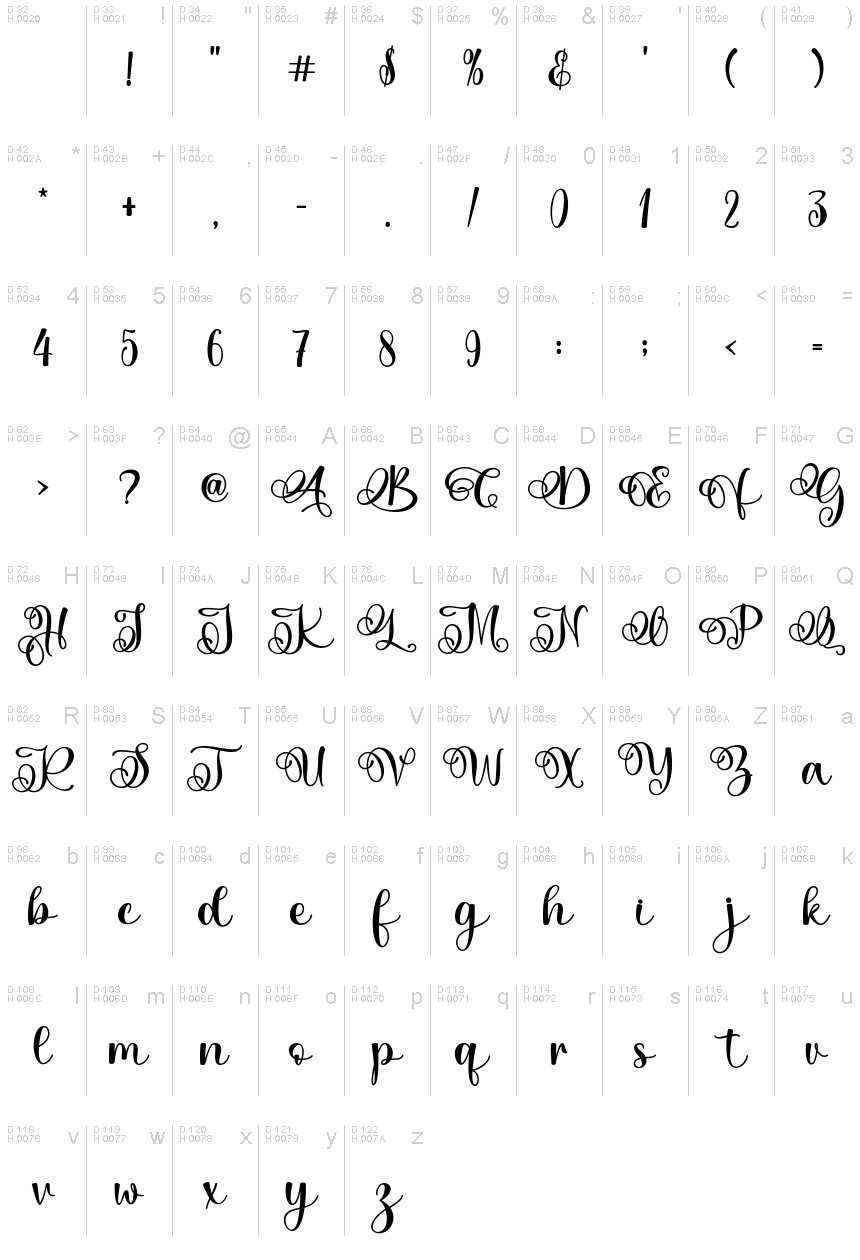 D 32 H 0020 D 33 H 0021 ! D 34 H 0022 " D 35 H 0023 # D 36 H 0024 $ D 37 H 0025 % D 38 H 0026 & D 39 H 0027 ' D 40 H 0028 ( D 41 H 0029 )
! " # $ % & ' ( )
D 42 H 002A * D 43 H 002B + D 44 H 002C , D 45 H 002D - D 46 H 002E . D 47 H 002F / D 48 H 0030 0 D 49 H 0031 1 D 50 H 0032 2 D 51 H 0033 3
* + , - . / 0 1 2 3
D 52 H 0034 4 D 53 H 0035 5 D 54 H 0036 6 D 55 H 0037 7 D 56 H 0038 8 D 57 H 0039 9 D 58 H 003A : D 59 H 003B ; D 60 H 003C < D 61 H 003D =
4 5 6 7 8 9 : ; < =
D 62 H 003E > D 63 H 003F ? D 64 H 0040 @ D 65 H 0041 A D 66 H 0042 B D 67 H 0043 C D 68 H 0044 D D 69 H 0045 E D 70 H 0046 F D 71 H 0047 G
> ? @ A B C D E F G
D 72 H 0048 H D 73 H 0049 I D 74 H 004A J D 75 H 004B K D 76 H 004C L D 77 H 004D M D 78 H 004E N D 79 H 004F O D 80 H 0050 P D 81 H 0051 Q
H I J K L M N O P Q
D 82 H 0052 R D 83 H 0053 S D 84 H 0054 T D 85 H 0055 U D 86 H 0056 V D 87 H 0057 W D 88 H 0058 X D 89 H 0059 Y D 90 H 005A Z D 97 H 0061 a
R S T U V W X Y Z a
D 98 H 0062 b D 99 H 0063 c D 100 H 0064 d D 101 H 0065 e D 102 H 0066 f D 103 H 0067 g D 104 H 0068 h D 105 H 0069 i D 106 H 006A j D 107 H 006B k
b c d e f g h i j k
D 108 H 006C l D 109 H 006D m D 110 H 006E n D 111 H 006F o D 112 H 0070 p D 113 H 0071 q D 114 H 0072 r D 115 H 0073 s D 116 H 0074 t D 117 H 0075 u
l m n o p q r s t u
D 118 H 0076 v D 119 H 0077 w D 120 H 0078 x D 121 H 0079 y D 122 H 007A z
v w x y z